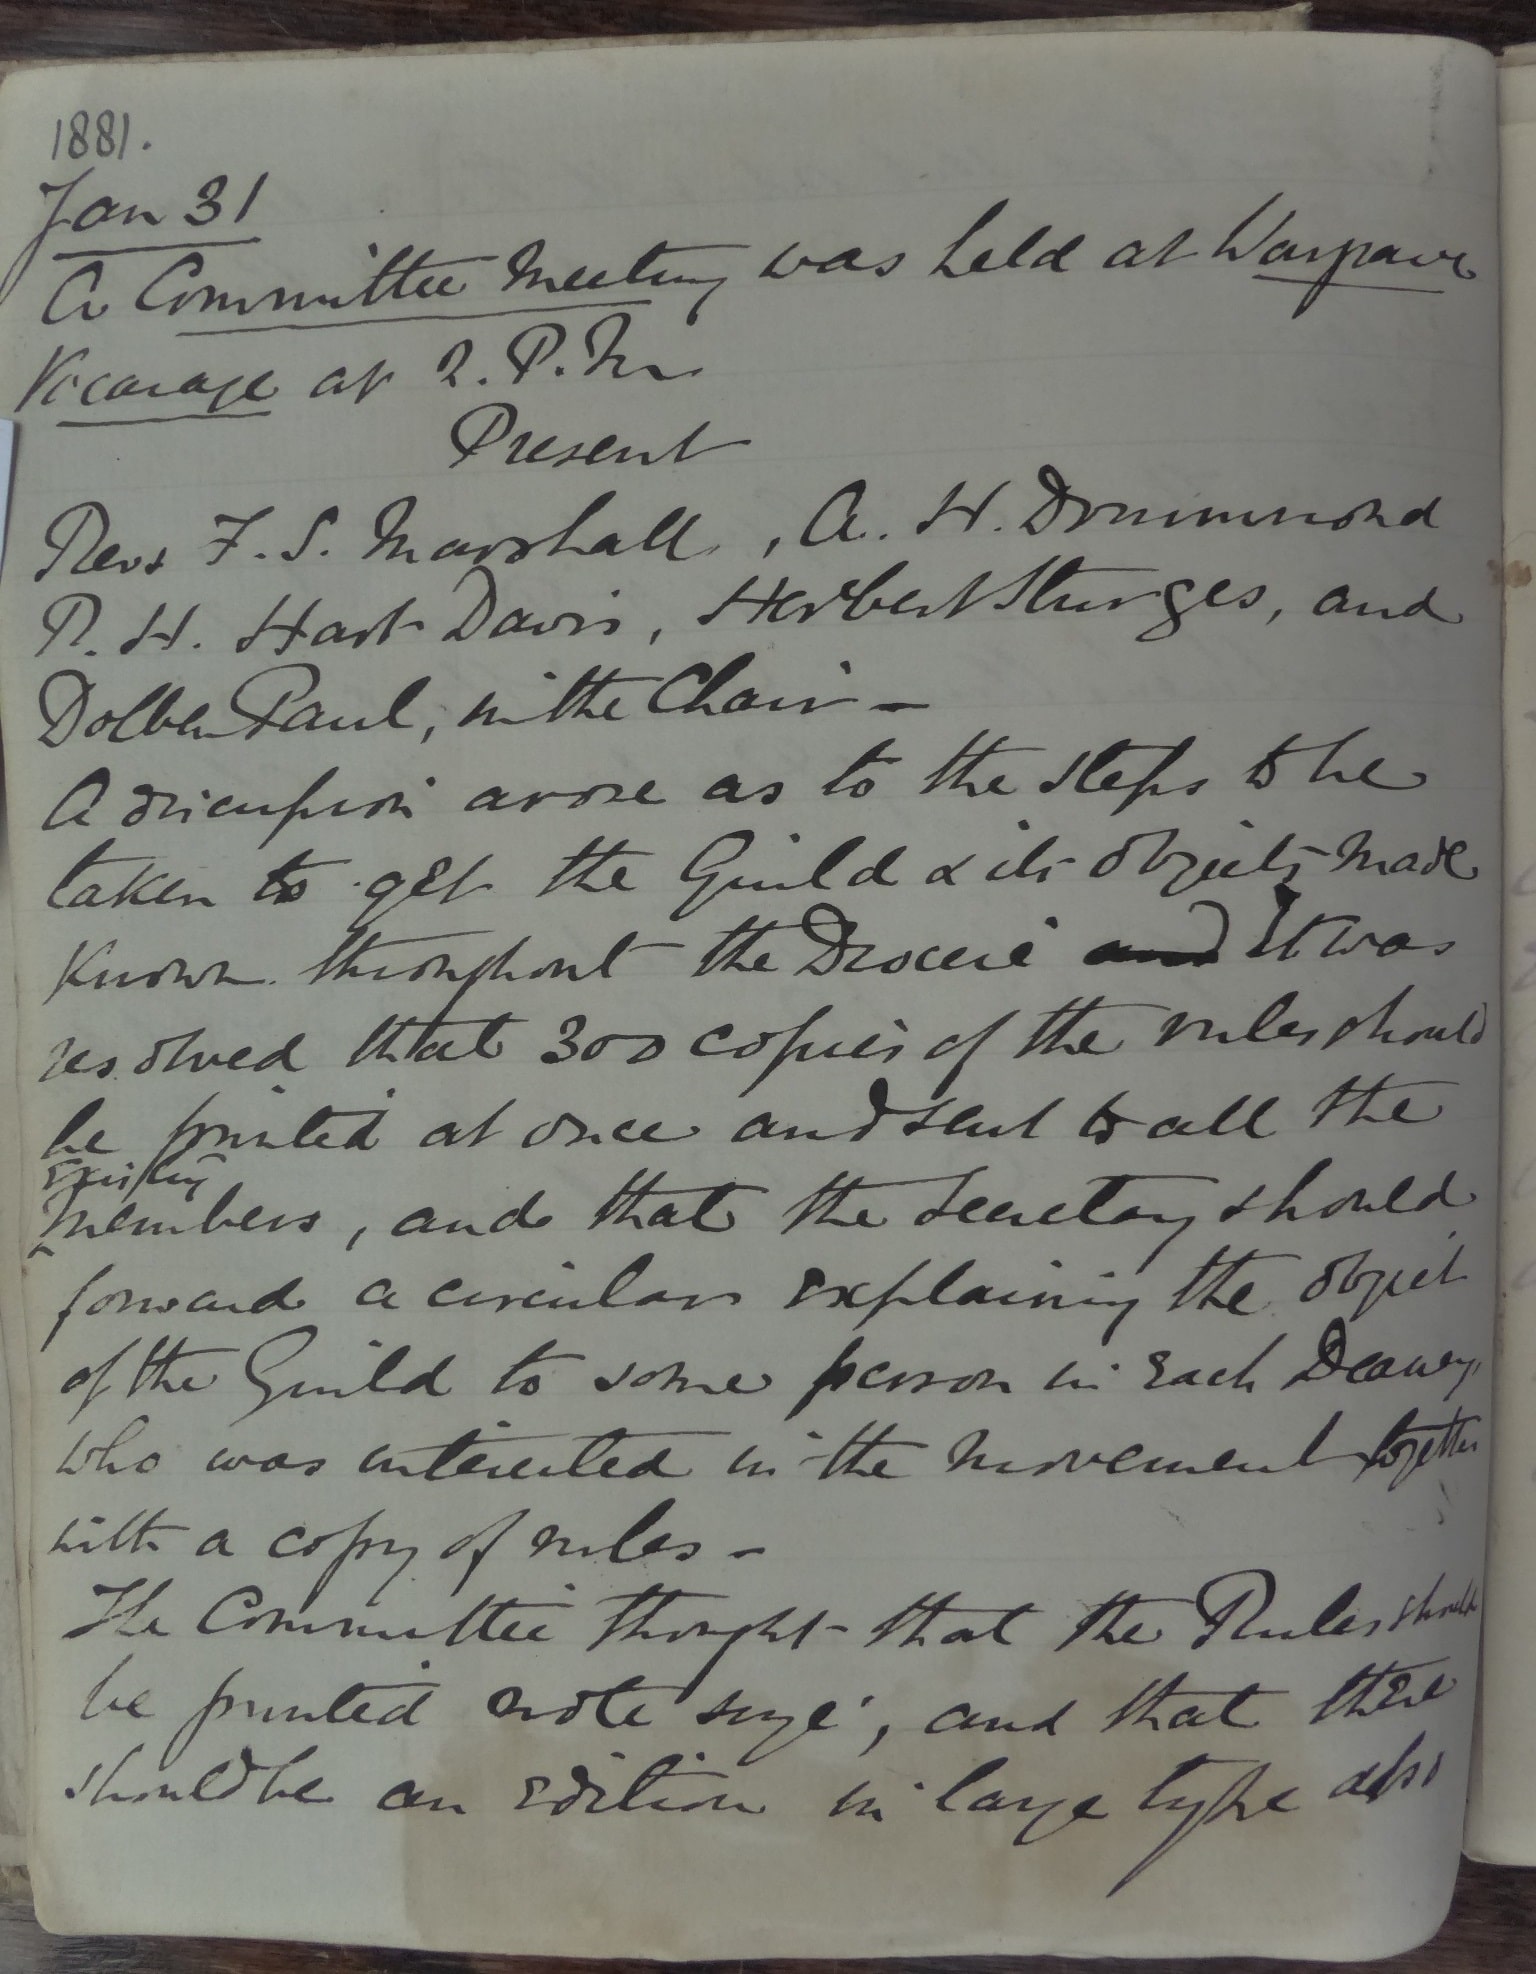 1881.
Jan 31
A Committee Meeting was held at Wargrave
Vicarage at 2. P.M.
Present
Revs F. S. Marshall, A. H. Drummond
R. H. Hart Davis, Herbert Sturges, and
Dolben Paul, in the Chair –
A discussion arose as to the steps to be
taken to get the Guild & its objects made
known throughout the Diocese and It was
resolved that 300 copies of the rules should
be printed at once and sent to all the
existing
members, and that the Secretary should
forward a circular explaining the object
of the Guild to some person in each Deanery
who was interested in the movement together
with a copy of rules –
The Committee thought that the Rules should
be printed note size, and that there
should be an edition in large type also